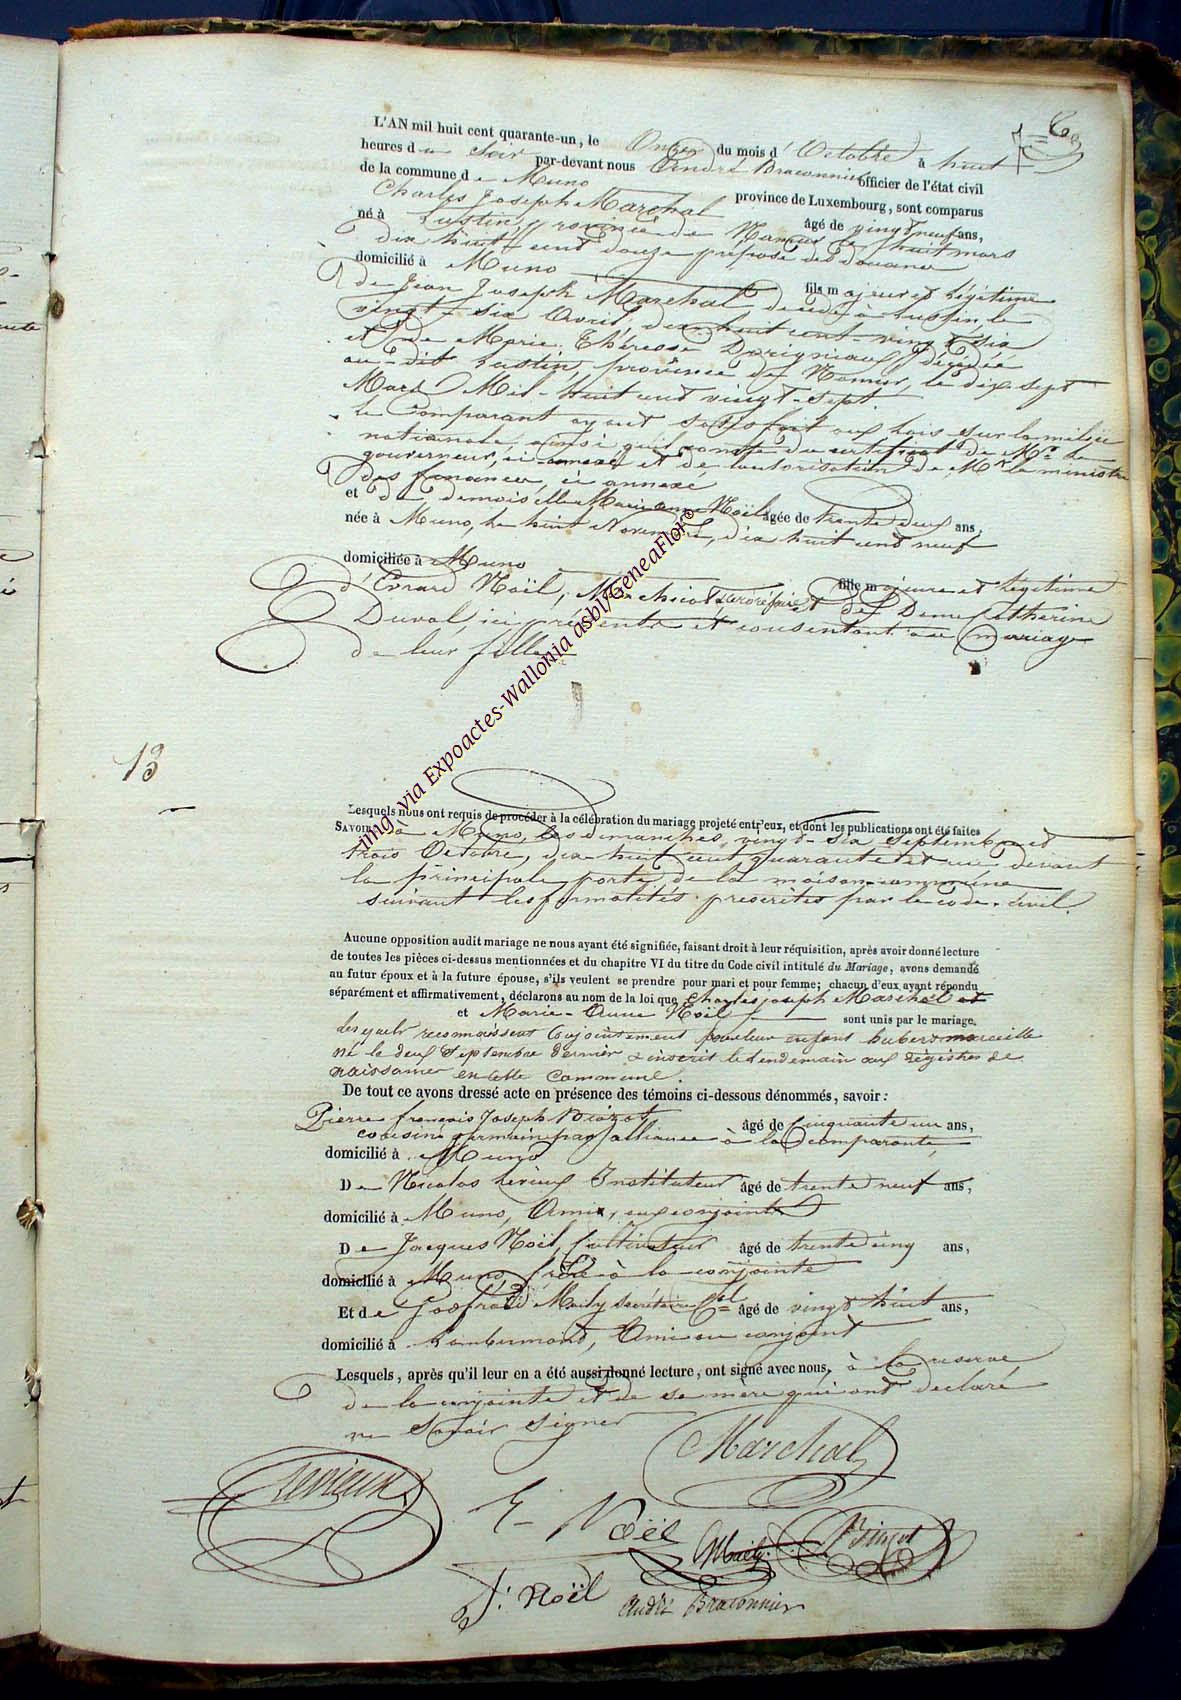 L'AN mil huit cent quarante-un, le Onze du mois d' Octobre à huit
heures du soir par-devant nous André Braconnier officier de l'état civil
de la commune de Muno province de Luxembourg, sont comparus
Charles Joseph Marchal âgé de vingt neuf ans,
né à Lustin, province de Namur le huit mars
dix huit cent douze préposé des douanes
domicilié à Muno fils majeur et légitime
de Jean Joseph Marchal décédé à Lustin, le
vingt-six Avril, dix huit cent vingt six
et de Marie Thérèse décédée
au-dit Lustin, province de Namur, le dix-sept
Mars Mil-huit cent vingt-sept.
le comparant ayant satisfait aux lois sur la milice
nationale, ainsi qu'il conste du certificat de Mr le
gouverneur, ci-annexé et de l'autorisation de Mr le ministre
des finances, ci annexé
et de demoiselle Marie anne Noël âgée de trente deux ans,
née à Muno, le huit Novembre, dix huit cent neuf
domiciliée à Muno fille majeure et légitime
d'Evrard Noël, et de Dame Catherine
Duval, ici présents et consentant au mariage
de leur fille
13
Lesquels nous ont requis de procéder à la célébration du mariage projeté entr'eux, et dont les publications ont été faites
SAVOIR: à Muno, les dimanches, vingt-six septembre et
trois Octobre, dix huit cent quarante et un, devant
la principale porte de la maison commune
suivant les formalités prescrites par le code civil.
Aucune opposition audit mariage ne nous ayant été signifiée, faisant droit à leur réquisition, après avoir donné lecture
de toutes les pièces ci-dessus mentionnées et du chapitre VI du titre du Code civil intitulé du Mariage, avons demandé
au futur époux et à la future épouse, s'ils veulent se prendre pour mari et pour femme; chacun d'eux ayant répondu
séparément et affirmativement, déclarons au nom de la loi que Charles joseph Marchal et
et Marie-Anne Noël sont unis par le mariage.
lesquels reconnaissent conjointement pour leur enfant hubert
né le deux Septembre dernier & inscrit le lendemain aux régistres de
naissance en cette commune.
De tout ce avons dressé acte en présence des témoins ci-dessous dénommés, savoir:
Pierre françois Joseph âgé de cinquante un ans,
cousin germain par alliance à la comparante,
domicilié à Muno
De Nicolas Lévieux Instituteur âgé de trente neuf ans,
domicilié à Muno, Ami aux conjoints
De Jacques Noël, Cultivateur âgé de trente cinq ans,
domicilié à Muno, frère à la conjointe
Et de Maily secrétaire âgé de vingt huit ans,
domicilié à Lambermont, Ami au conjoint
Lesquels, après qu'il leur en a été aussi donné lecture, ont signé avec nous, à la reserve
de la conjointe et de sa mère qui ont declaré
ne Savoir Signer
Marchal
Levieux
E- Noël
Maily
J: Noël
André Braconnier
img via Expoactes-Wallonia asbl/GeneaFlor©